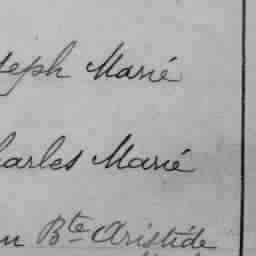 Joseph Marié
Charles Marié
Bte Aristide